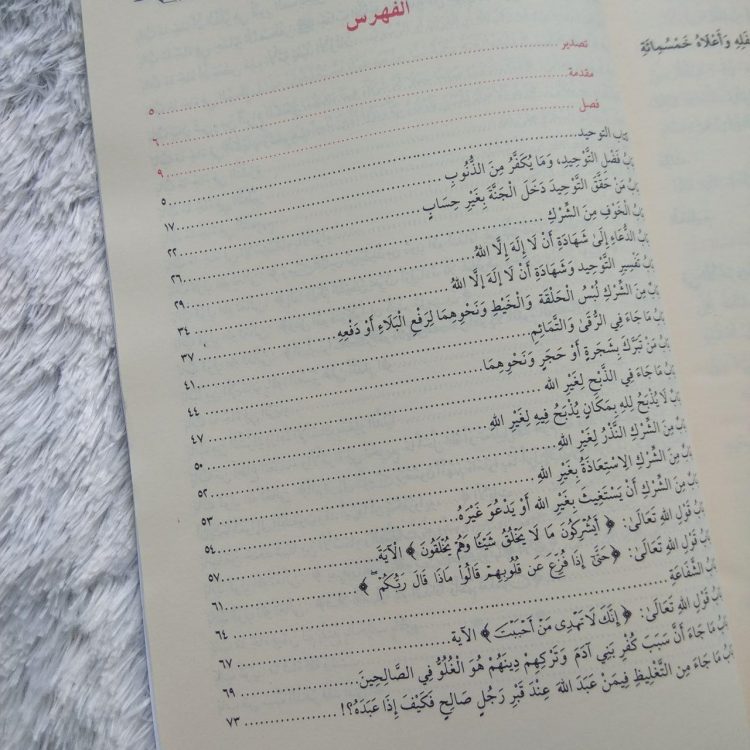 فِلِهِ وَأَعْلَاهُ خَمْسُمِائَةِ
الفهرس
تصدير ٥
مقدمة ٦
فصل ٩
كتاب التوحيد ٥
بَابُ فَضْلِ التَّوْحِيدِ، وَمَا يُكَفِّرُ مِنَ الذُّنُوبِ ١٧
بَابُ مَنْ حَقَّقَ التَّوْحِيدَ دَخَلَ الْجَنَّةَ بِغَيْرِ حِسَابٍ ٢٢
بَابُ الْخَوْفِ مِنَ الشِّرْكِ ٢٦
بَابُ الدُّعَاءِ إِلَىٰ شَهَادَةِ أَنْ لَا إِلَهَ إِلَّا اللهُ ٢٩
بَابُ تَفْسِيرِ التَّوْحِيدِ وَشَهَادَةِ أَنْ لَا إِلَهَ إِلَّا اللهُ ٣٤
بَابٌ مِنَ الشِّرْكِ لُبْسُ الْحَلْقَةِ وَالْخَيْطِ وَنَحْوِهِمَا لِرَفْعِ الْبَلَاءِ أَوْ دَفْعِهِ ٣٧
بَابُ مَا جَاءَ فِي الرُّقَىٰ وَالتَّمَائِمِ ٤١
بَابُ مَنْ تَبَرَّكَ بِشَجَرَةٍ أَوْ حَجَرٍ وَنَحْوِهِمَا ٤٤
بَابُ مَا جَاءَ فِي الذَّبْحِ لِغَيْرِ اللهِ ٤٧
بَابُ لَا يُذْبَحُ لِلهِ بِمَكَانٍ يُذْبَحُ فِيهِ لِغَيْرِ اللهِ ٥٠
بَابٌ مِنَ الشِّرْكِ النَّذْرُ لِغَيْرِ اللهِ ٥٢
بَابٌ مِنَ الشِّرْكِ الِاسْتِعَاذَةُ بِغَيْرِ اللهِ ٥٣
بَابٌ مِنَ الشِّرْكِ أَنْ يَسْتَغِيثَ بِغَيْرِ اللهِ أَوْ يَدْعُوَ غَيْرَهُ ٥٤
بَابُ قَوْلِ اللهِ تَعَالَىٰ: ﴿ أَيُشْرِكُونَ مَا لَا يَخْلُقُ شَيْئًا وَهُمْ يُخْلَقُونَ ﴾ الْآيَةَ ٥٧
بَابُ قَوْلِ اللهِ تَعَالَىٰ: ﴿ حَتَّىٰ إِذَا فُزِّعَ عَن قُلُوبِهِمْ قَالُوا۟ مَاذَا قَالَ رَبُّكُمْ ﴾ ٦١
بَابُ الشَّفَاعَةِ ٦٤
بَابُ قَوْلِ اللهِ تَعَالَىٰ: ﴿ إِنَّكَ لَا تَهْدِى مَنْ أَحْبَبْتَ ﴾ الآية ٦٧
بَابُ مَا جَاءَ أَنَّ سَبَبَ كُفْرِ بَنِي آدَمَ وَتَرْكِهِمْ دِينَهُمْ هُوَ الْغُلُوُّ فِي الصَّالِحِينَ ٦٩
بَابُ مَا جَاءَ مِنَ التَّغْلِيظِ فِيمَنْ عَبَدَ اللهَ عِنْدَ قَبْرِ رَجُلٍ صَالِحٍ فَكَيْفَ إِذَا عَبَدَهُ؟! ٧٣